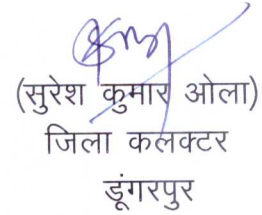 (सुरेश कुमार ओला)
जिला कलक्टर
डूंगरपुर